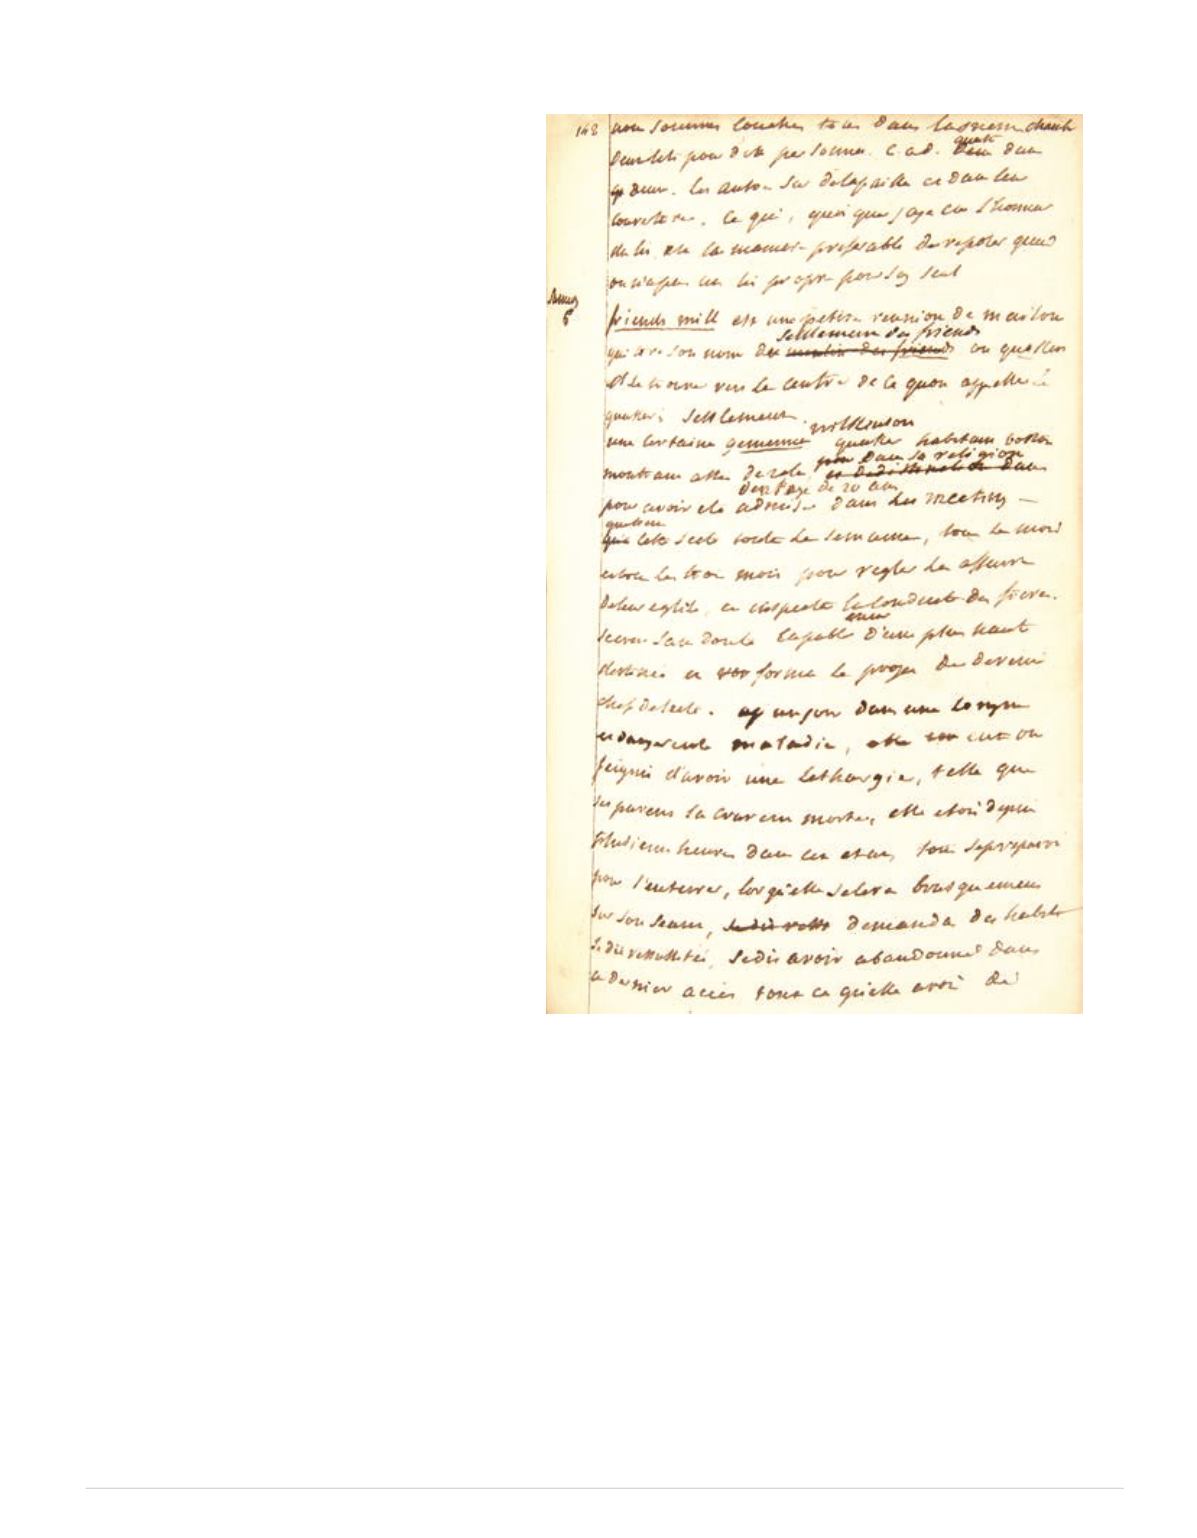 148 nous sommes couches tous dans la mem chamb
deux lits pour dix personnes. c.a.d. quatre dans
deux. les autres sur de la paille et dans leur
couvertures. Ce qui, quoi que j'aye eu l'honneur
du lit est la maniere preferable de reposer quand
on n'a pas un lit propre pour soy seul
friends mill est une petite reunion de maisons
qui tire son nom du moulin des friends settlement des friends ou quakers
et se trouve vers le centre de ce quon appelle le
quaker's settlement.
une certaine gemima wilkinson quaker
montrant asses de zele pour dans sa religion et dans
pour avoir ete admise des l'age de 20 ans dans les meeting
que cette secte toute les semaines, tous les mois
et tous les trois mois pour regler les affaires
de leur eglise, et inspecter la conduite des freres.
se crue sans doute capable d'une plus haute
destinée et forma le projet de devenir
chef de secte. un jour dans une longue
et dangereuse maladie, elle eut ou
feignit d'avoir une lethargie, telle que
ses parens la crurent morte, elle etoit depuis
plusieurs heures dans cet etat, tout se preparoit
pour l'enterrer, lorsqu'elle se leva brusquement
sur son seant, se dit ress demanda des habits
se dit ressussitée, se dit avoir abandonné dans
ce dernier acces tout ce qu'elle avoit de